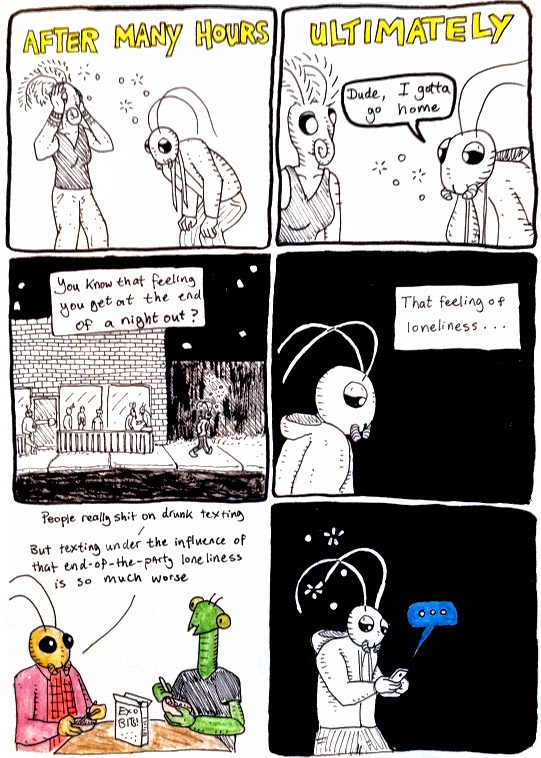 AFTER MANY HOURS
ULTIMATELY
Dude, I gotta
go home
You know that feeling
you get at the end
of a night out?
That feeling of
loneliness...
People really shit on drunk texting
But texting under the influence of
that end-of-the-party loneliness
is so much worse
EXO
BITS!
...